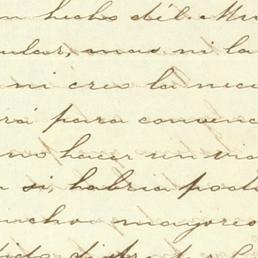 hecho dél. Mu
ular, mas ni la
ni creo la nece
rá para conven
no hacer un via
si, habria pod
muchos mayores